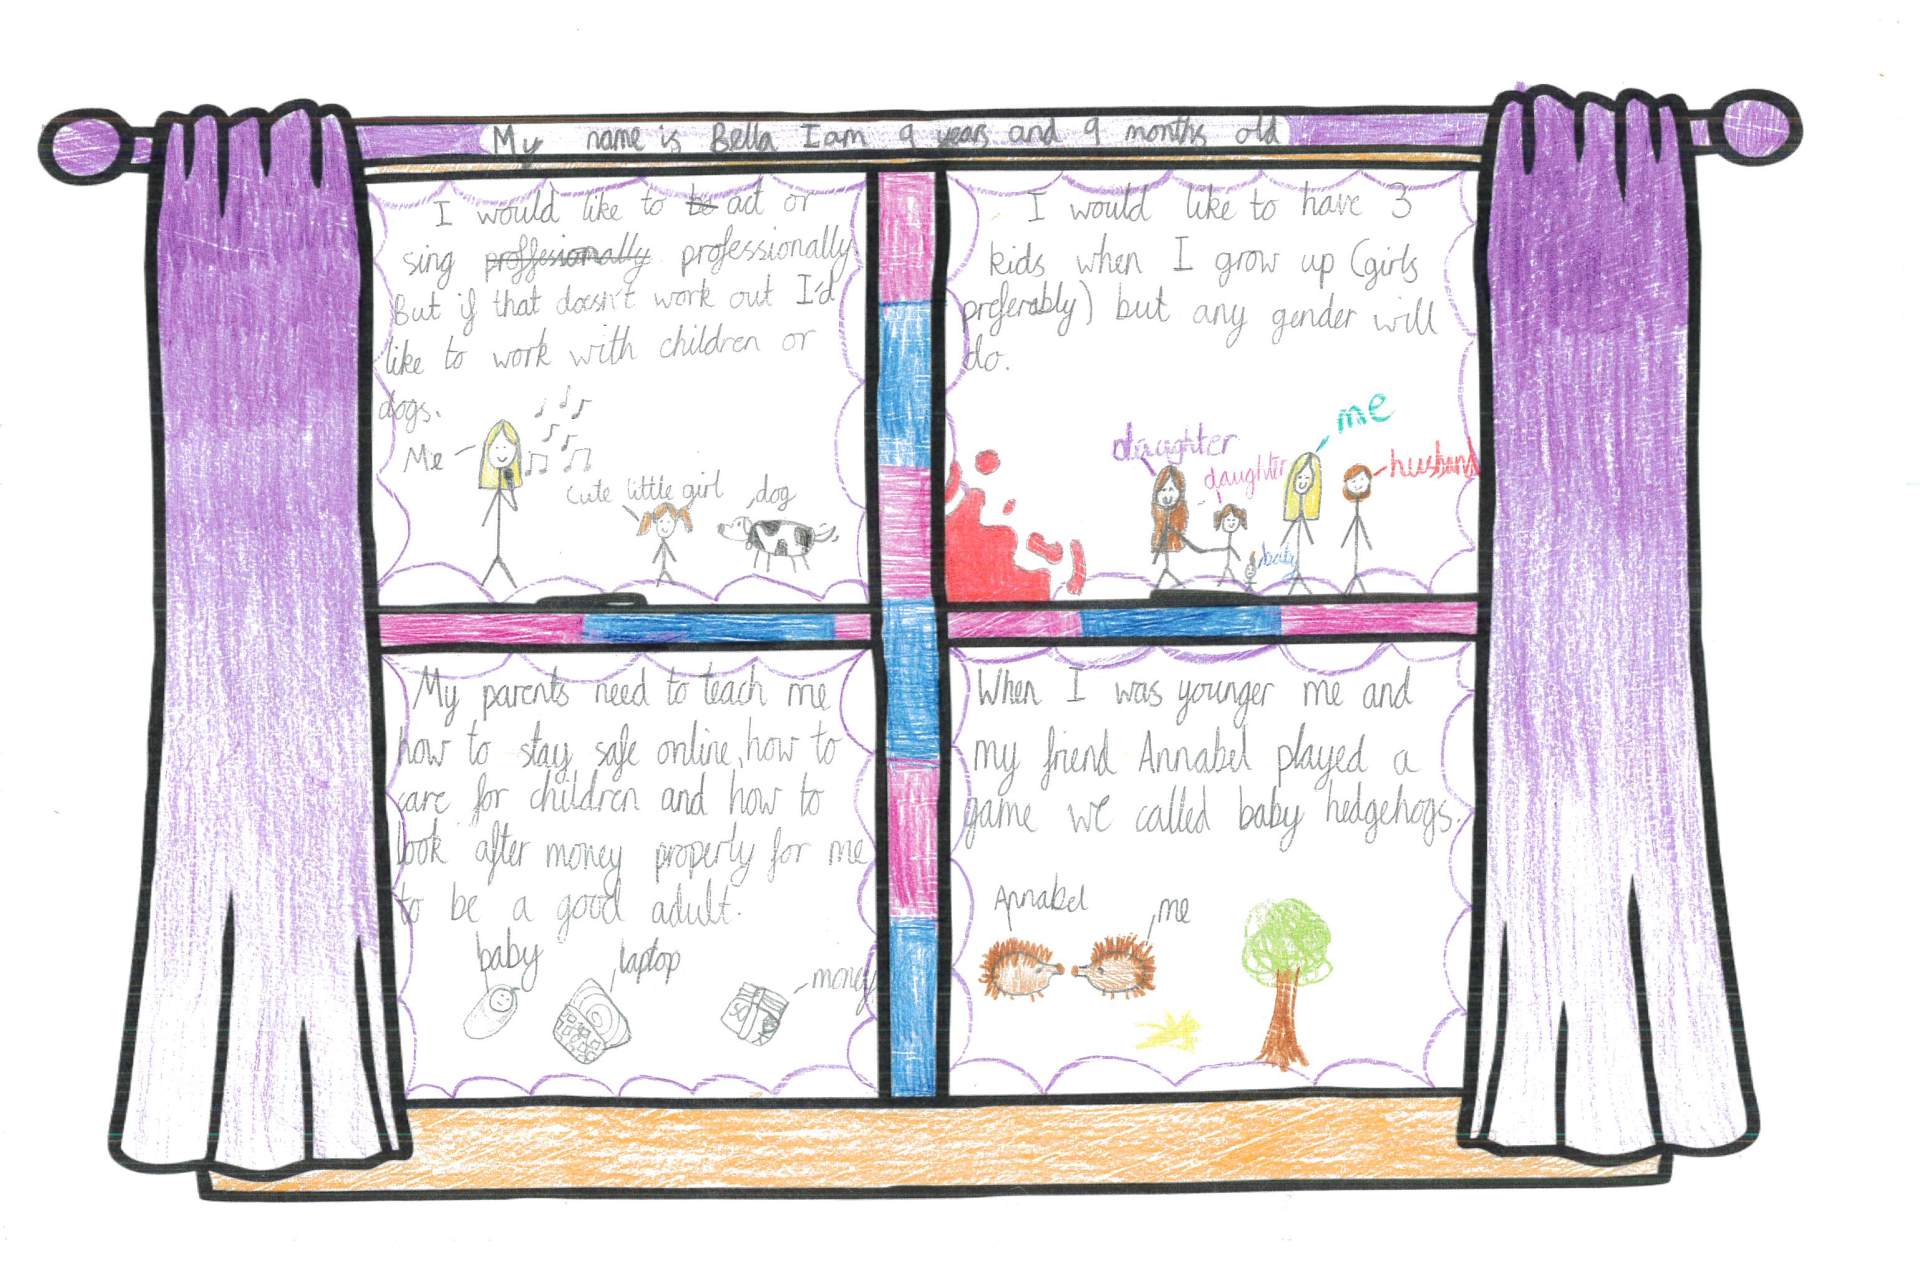 My name is Bella I am 9 years and 9 months old
I would like to be act or
sing proffesionally professionally
But if that doesn't work out I'd
like to work with children or
dogs.
Me
cute little girl
dog
I would like to have 3
kids when I grow up (girls
preferably) but any gender will
do.
daughter
daughter
me
husband
baby
My parents need to teach me
how to stay safe online, how to
care for children and how to
look after money properly for me
to be a good adult.
baby
laptop
money
50
When I was younger me and
my friend Annabel played a
game we called baby hedgehogs.
Annabel
me